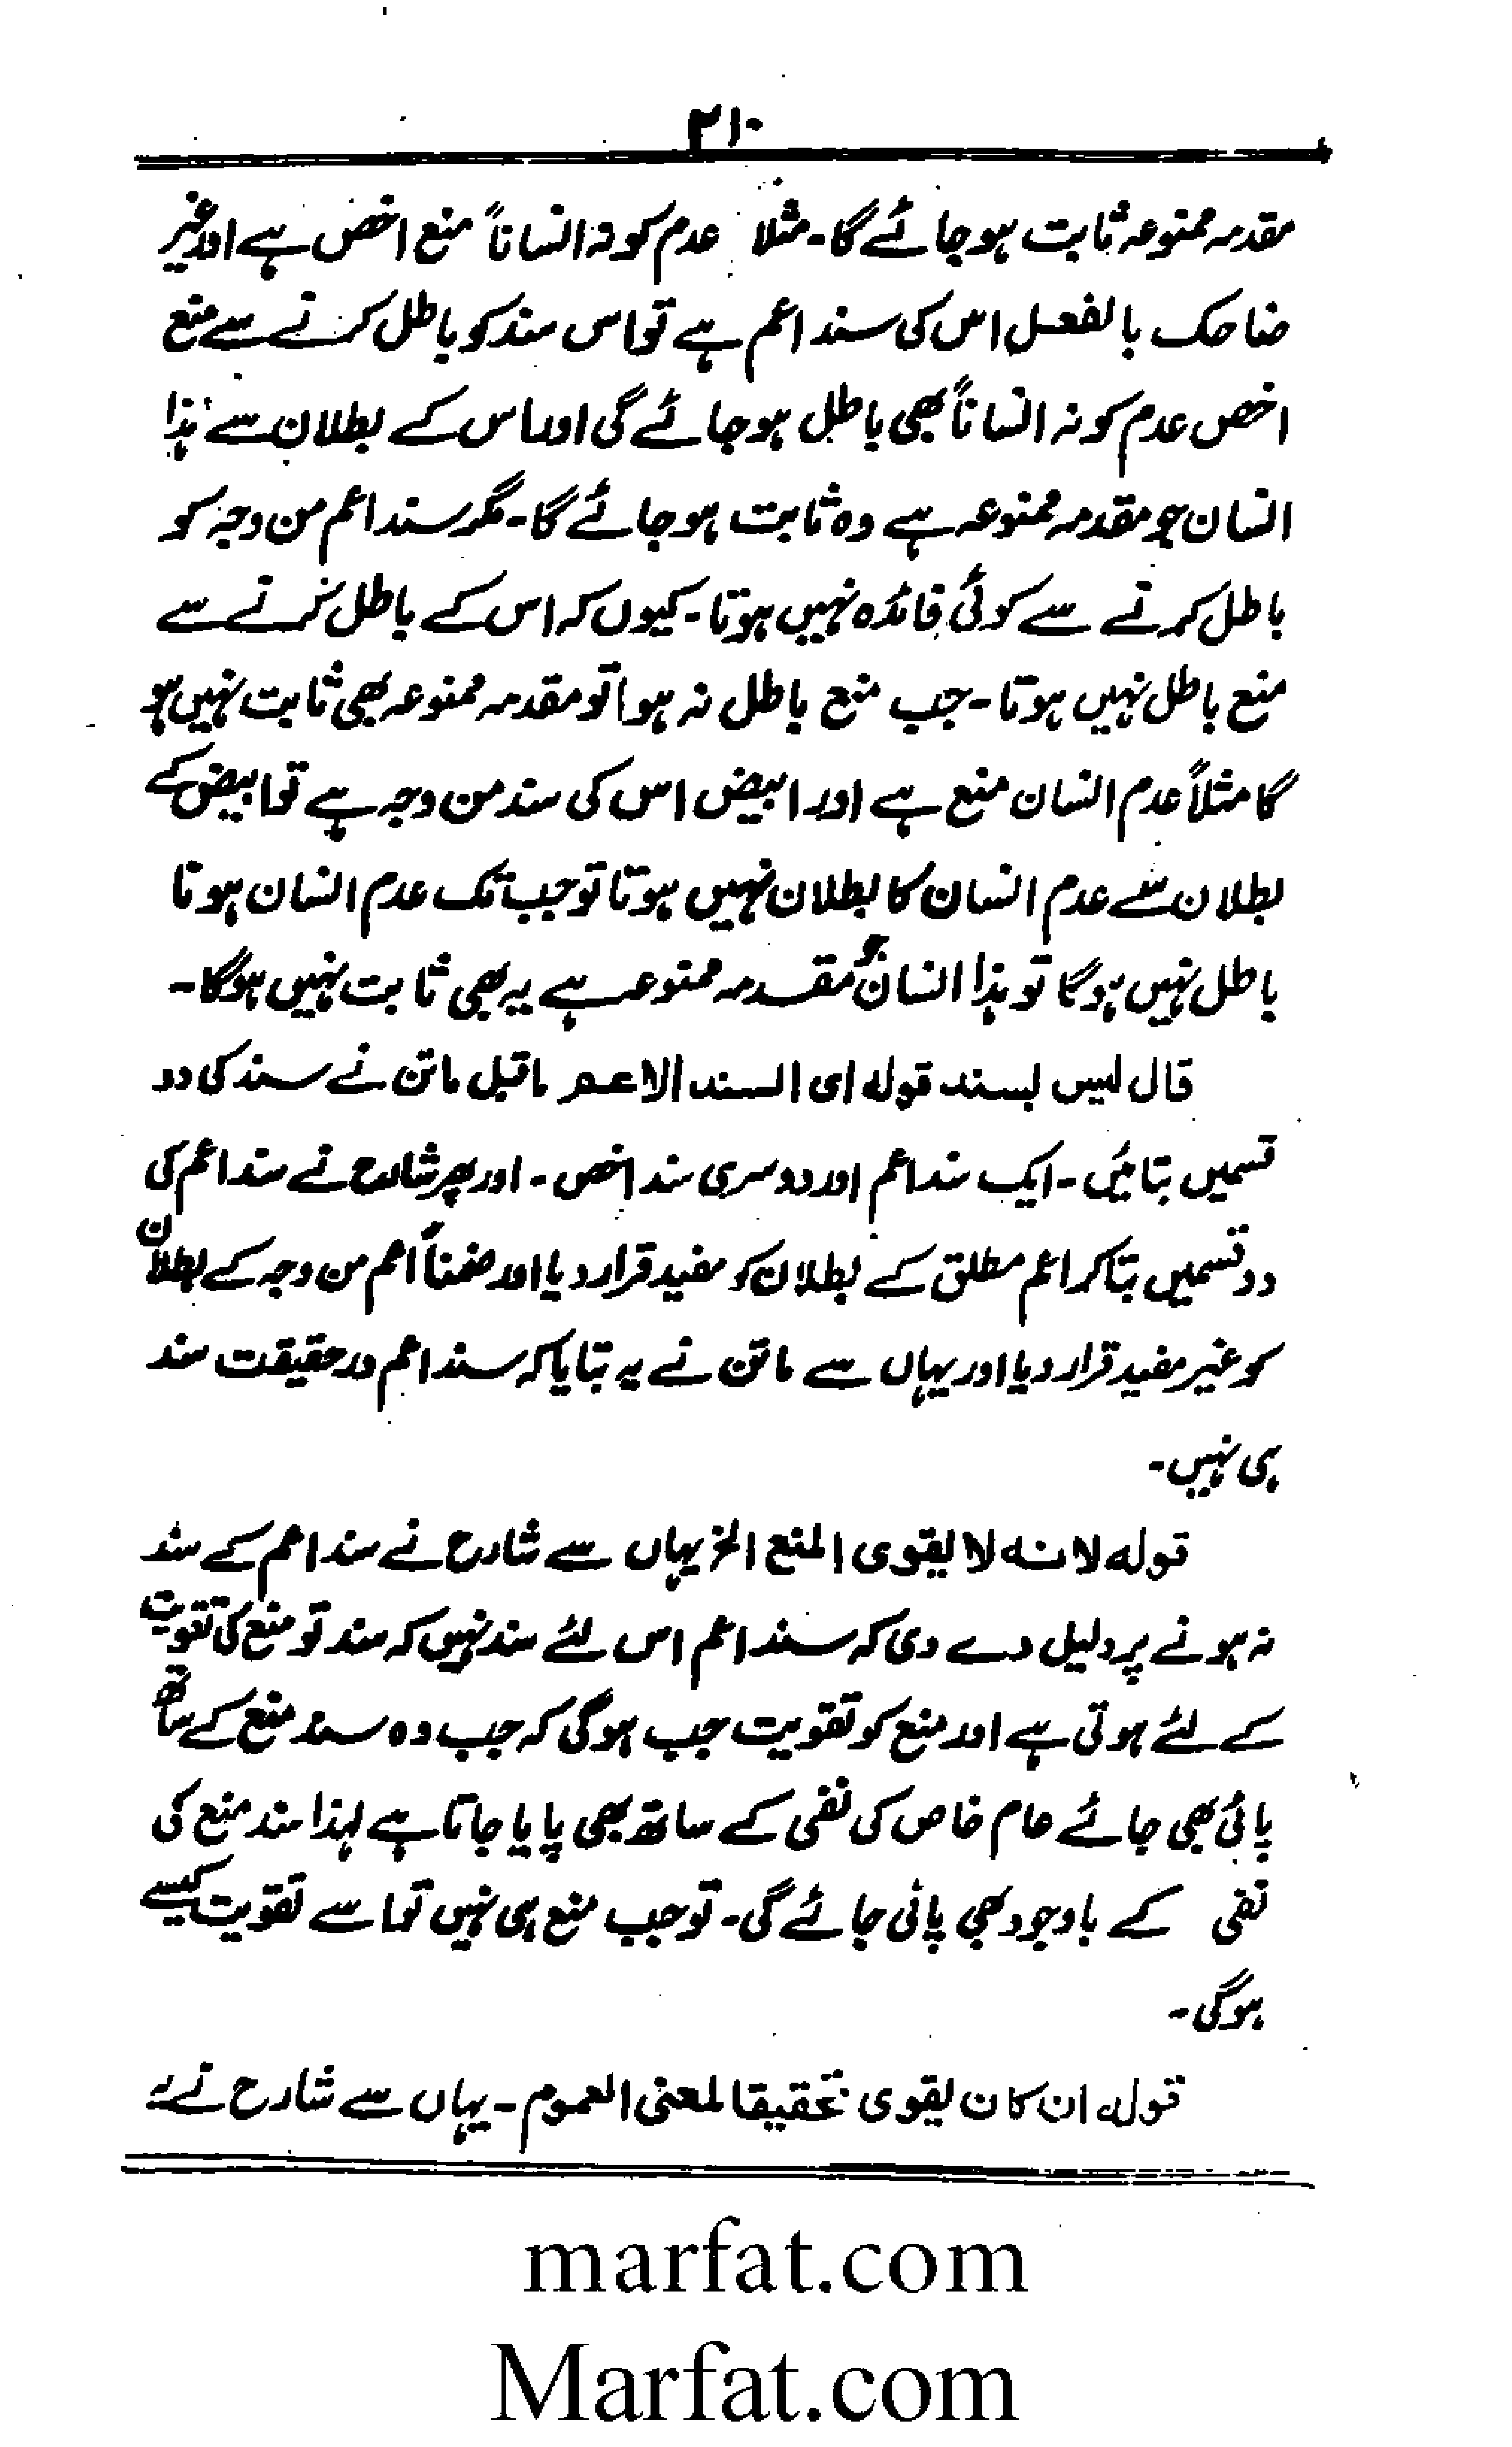 ۲۱۰
مقدمہ ممنوعہ ثابت ہو جائے گا۔ مثلا عدم کونہ انساناً منع اخص ہے اور غیر
ضاحک بالفعل اس کی سند اعم ہے تو اس سند کو باطل کرنے سے منع
اخص عدم کونہ انساناً بھی باطل ہو جائے گی اور اس کے بطلان سے ہٰذا
انسان جو مقدمہ ممنوعہ ہے وہ ثابت ہو جائے گا۔ مگر سند اعم من وجہ کو
باطل کرنے سے کوئی فائدہ نہیں ہوتا۔ کیوں کہ اس کے باطل کرنے سے
منع باطل نہیں ہوتا۔ جب منع باطل نہ ہوا تو مقدمہ ممنوعہ بھی ثابت نہیں ہو
گا مثلاً عدم انسان منع ہے اور ابیض اس کی سند من وجہ ہے تو ابیض کے
بطلان سے عدم انسان کا بطلان نہیں ہوتا تو جب تک عدم انسان ہوتا
باطل نہیں ہوگا تو ہذا انسان جو مقدمہ ممنوعہ ہے یہ بھی ثابت نہیں ہوگا۔
قال لیس بسند قولہ ای السند الاعم ماقبل ماتن نے سند کی دو
قسمیں بتائیں۔ ایک سند اعم اور دوسری سند اخص۔ اور پھر شارح نے سند اعم کی
دو قسمیں بتا کر اعم مطلق کے بطلان کو مفید قرار دیا اور ضمناً اعم من وجہ کے بطلان
کو غیر مفید قرار دیا اور یہاں سے ماتن نے یہ بتایا کہ سند اعم در حقیقت سند
ہی نہیں۔
قولہ لانہ لا یقوی المنع الخ یہاں سے شارح نے سند اعم کے سند
نہ ہونے پر دلیل دے دی کہ سند اعم اس لئے سند نہیں کہ سند تو منع کی تقویت
کے لئے ہوتی ہے اور منع کو تقویت جب ہوگی کہ جب وہ سند منع کے ساتھ
پائی بھی جائے عام خاص کی نفی کے ساتھ بھی پایا جاتا ہے لہذا سند منع کی
نفی کے باوجود بھی پائی جائے گی۔ تو جب منع ہی نہیں تو اسے تقویت کیسے
ہوگی۔
قولہ ان کان یقوی تحقیقا لمعنی العموم۔ یہاں سے شارح نے یہ
marfat.com
Marfat.com